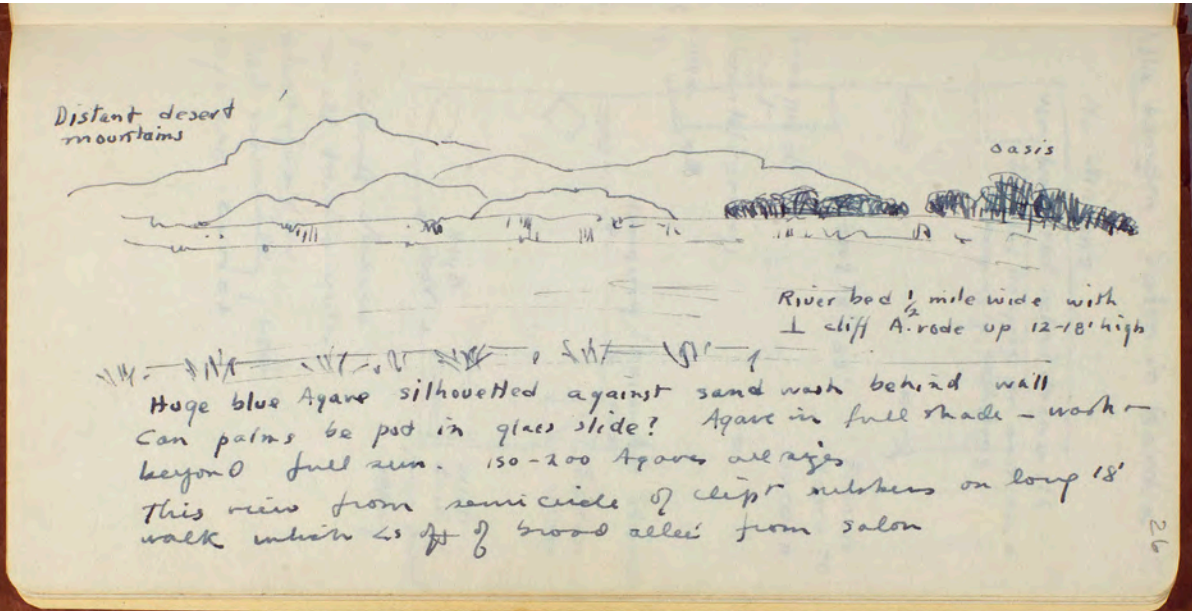 Distant desert
mountains
oasis
River bed ½ mile wide with
⊥ cliff A. rode up 12-18' high
Huge blue Agave silhouetted against sand wash behind wall
Can palms be put in glass slide? Agave in full shade - wash -
beyond full sun. 150-200 Agaves all sizes
This view from semicircle of clipt on long 18'
walk which ∠s off of broad alleé from salon
26